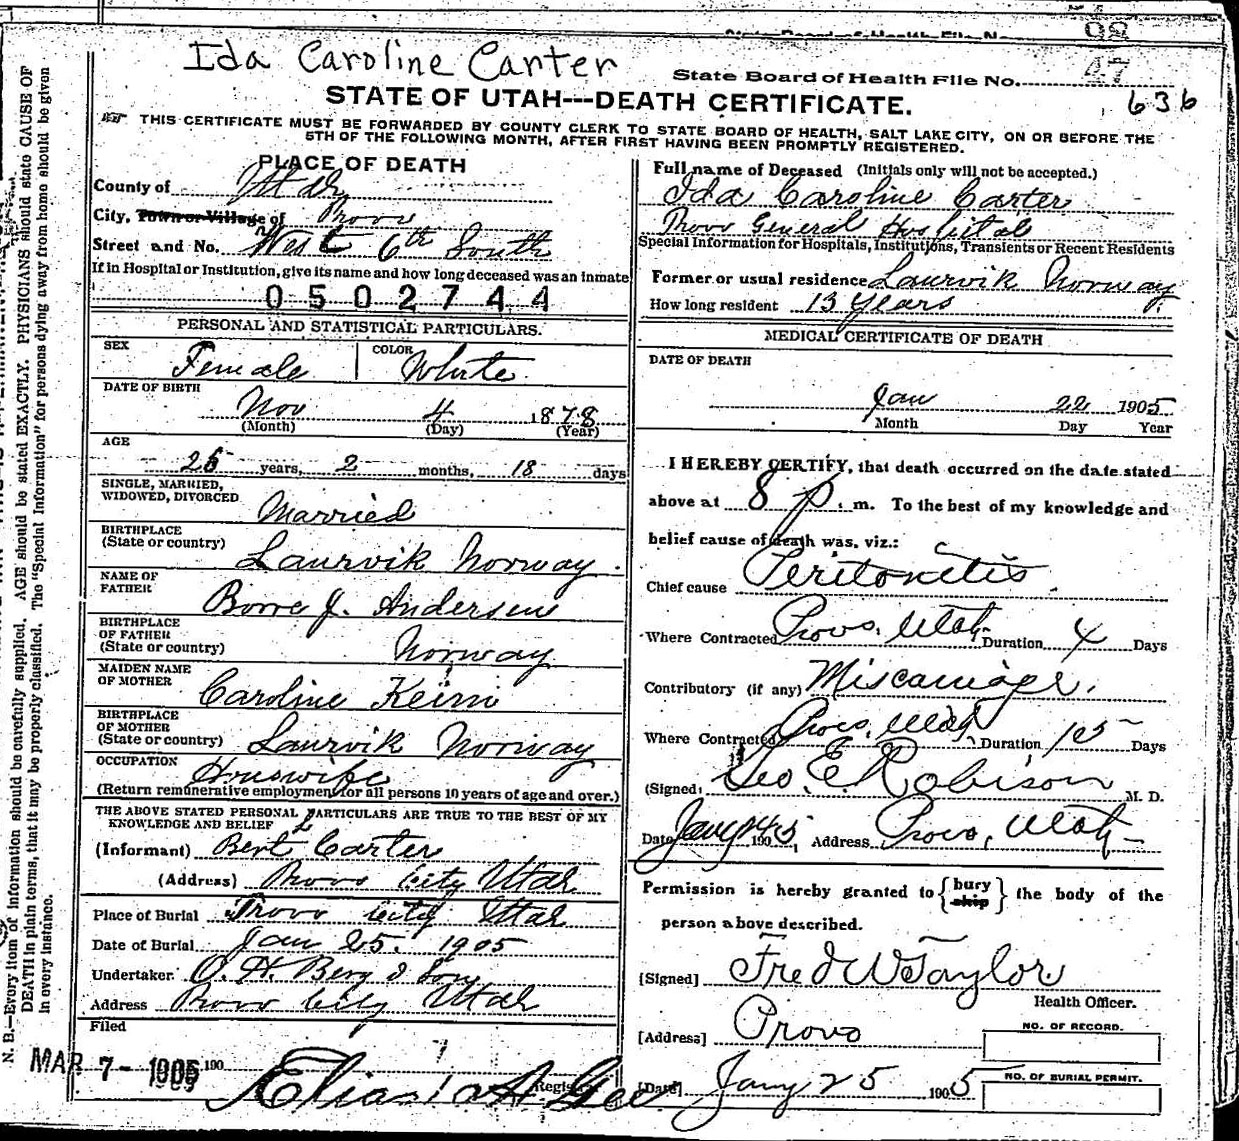 State Board of Health File No. 98
Ida Caroline Carter
State Board of Health File No. 47
STATE OF UTAH---DEATH CERTIFICATE.
636
THIS CERTIFICATE MUST BE FORWARDED BY COUNTY CLERK TO STATE BOARD OF HEALTH, SALT LAKE CITY, ON OR BEFORE THE
5TH OF THE FOLLOWING MONTH, AFTER FIRST HAVING BEEN PROMPTLY REGISTERED.
PLACE OF DEATH
County of Utah
City, Town or Village of Provo
Street and No. West 6th South
If in Hospital or Institution, give its name and how long deceased was an inmate
0502744
PERSONAL AND STATISTICAL PARTICULARS.
SEX Female
COLOR White
DATE OF BIRTH
Nov 4 1878
(Month) (Day) (Year)
AGE
26 years, 2 months, 18 days
SINGLE, MARRIED,
WIDOWED, DIVORCED Married
BIRTHPLACE
(State or country) Laurvik Norway.
NAME OF
FATHER J. Andersen
BIRTHPLACE
OF FATHER
(State or country) Norway
MAIDEN NAME
OF MOTHER Caroline
BIRTHPLACE
OF MOTHER
(State or country) Laurvik Norway
OCCUPATION Housewife
(Return remunerative employment for all persons 10 years of age and over.)
THE ABOVE STATED PERSONAL PARTICULARS ARE TRUE TO THE BEST OF MY
KNOWLEDGE AND BELIEF
(Informant) Bert Carter
(Address) Provo City Utah
Place of Burial Provo City Utah
Date of Burial Jan 25. 1905
Undertaker O. H. Berg & Son
Address Provo City Utah
Filed
MAR 7- 1905 190
Elias A Gee
Registrar
Full name of Deceased (Initials only will not be accepted.)
Ida Caroline Carter
Provo General Hospital
Special Information for Hospitals, Institutions, Transients or Recent Residents
Former or usual residence Laurvik Norway
How long resident 13 years
MEDICAL CERTIFICATE OF DEATH
DATE OF DEATH
Jan 22 1905
Month Day Year
I HEREBY CERTIFY, that death occurred on the date stated
above at 8 p. m. To the best of my knowledge and
belief cause of death was, viz.:
Chief cause Peritonitis
Where Contracted Provo, Utah Duration 4 Days
Contributory (if any) Miscarriage.
Where Contracted Provo, Utah Duration Days
(Signed) Geo. E. Robison M. D.
Date Jany 24 1905, Address Provo, Utah
Permission is hereby granted to {bury ship} the body of the
person above described.
[Signed] Fred W Taylor
Health Officer.
[Address] Provo
NO. OF RECORD.
[Date] Jany 25 1905
NO. OF BURIAL PERMIT.
N. B.—Every item of information should be carefully supplied. AGE should be stated EXACTLY. PHYSICIANS should state CAUSE OF
DEATH in plain terms, that it may be properly classified. The "Special Information" for persons dying away from home should be given
in every instance.